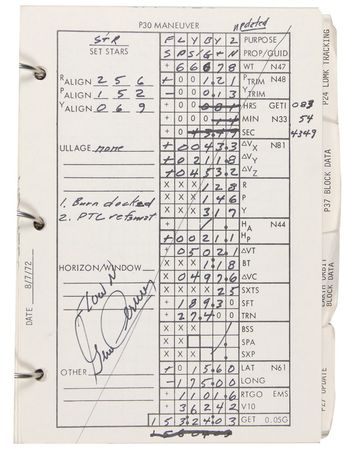 P30 MANEUVER
updated
S+R
SET STARS
F L Y B Y 2 PURPOSE
S P S / G + N PROP/GUID
+ 6 6 6 7 8 WT N47
R ALIGN 2 5 6
+ 0 0 1.2 1 P TRIM N48
P ALIGN 1 5 2
- 0 0 1 3 Y TRIM
Y ALIGN 0 6 9
HRS GETI 083
MIN N33 54
SEC 4349
ULLAGE none
+ 0 0 4 3.3 ΔVX N81
+ 0 2 1 1.8 ΔVY
+ 0 4 5 3.2 ΔVZ
X X X 1 2 8 R
1. Burn docked
X X X 1 4 6 P
2. PTC refsmat
X X X 3 1 7 Y
+ HA N44
+ 0 0 2 1.1 HP
+ 0 5 0 2.1 ΔVT
X X X 1:1 8 BT
HORIZON/WINDOW
X 0 4 9 7.6 ΔVC
X X X X SXTS
+ 1 8 9.3 0 SFT
Flown
+ 2 7 4.0 0 TRN
Gene Cernan
X X X BSS
X X SPA
X X X SXP
OTHER
+ 1 5.6 0 LAT N61
- 1 7 5.0 0 LONG
+ 1 1 0 1.6 RTGO EMS
+ 3 6 2 4 2 V10
1 5 3:2 4:0 3 GET 0.05G
DATE 8/7/72
P24 LDMK TRACKING
P37 BLOCK DATA
BLOCK DATA
P27 UPDATE